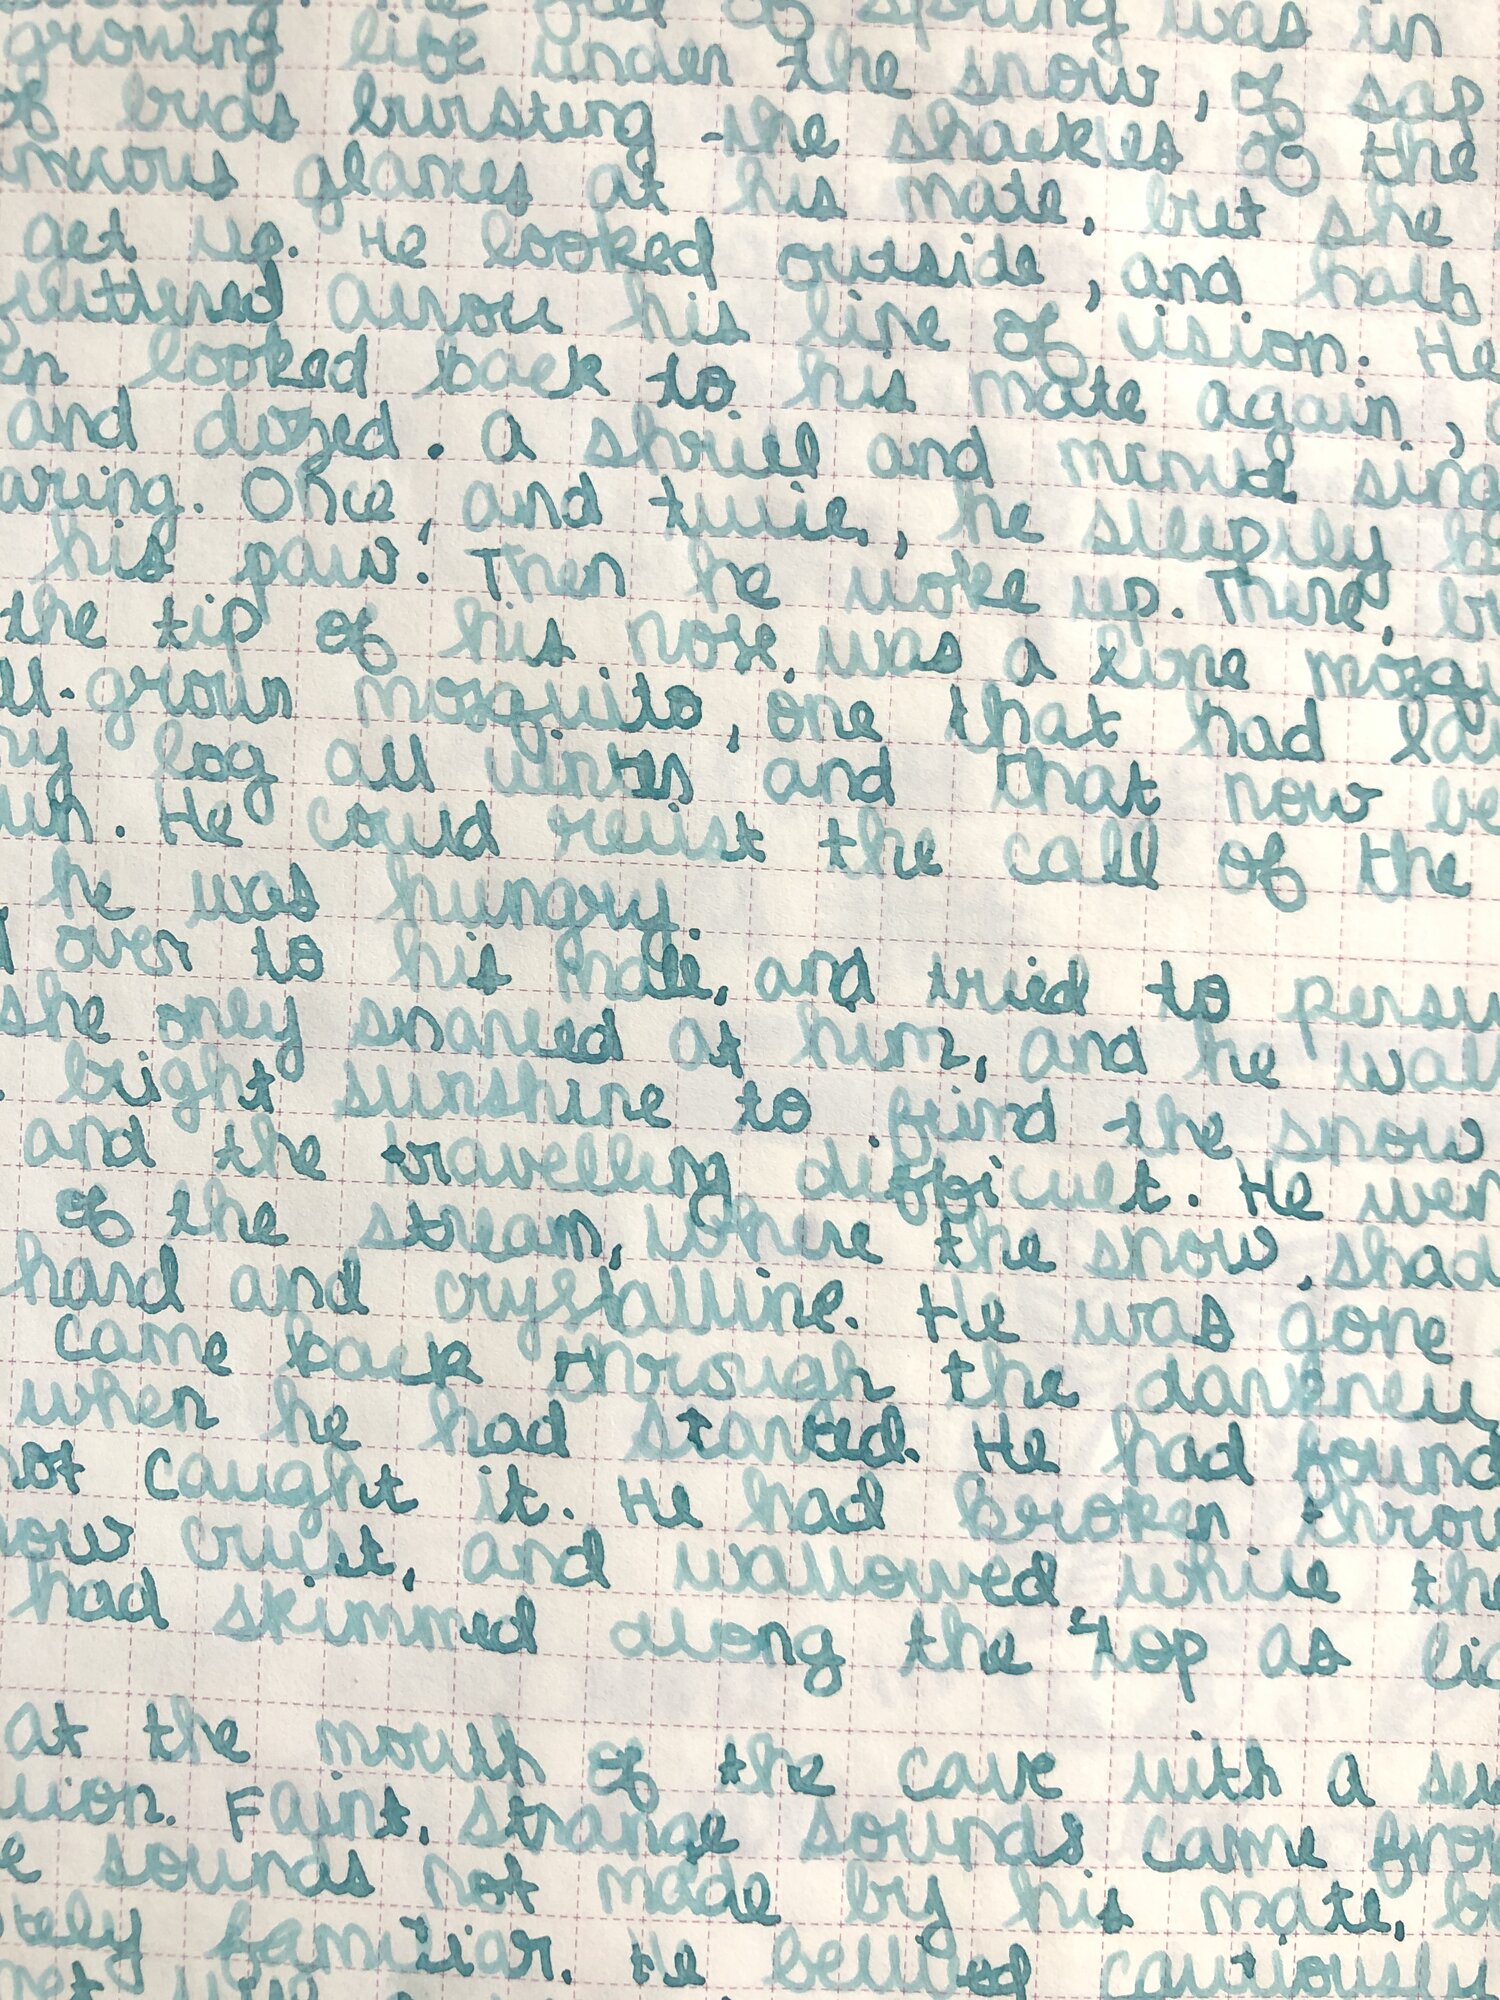 The feel of spring was in
growing life under the snow, of sap
of buds bursting the shackles of the
anxious glances at his mate, but she
get up. He looked outside, and half
fluttered across his line of vision. He
looked back to his mate again,
and dozed. A shrill and minute sing
Once, and twice, he sleepily
his paw. Then he woke up. There,
the tip of his nose, was a lone
grown mosquito, one that had
log all winter and that now
He could resist the call of the
he was hungry.
over to his mate, and tried to
she only snarled at him, and he
bright sunshine to find the snow
and the travelling difficult. He
of the stream, where the snow,
hard and crystalline. He was gone
came back through the darkness
when he had started. He had found
not caught it. He had broken
crust, and wallowed, while the
had skimmed along the top as
at the mouth of the cave with a
Faint, strange sounds came
sounds not made by his mate,
familiar. He bellied cautiously